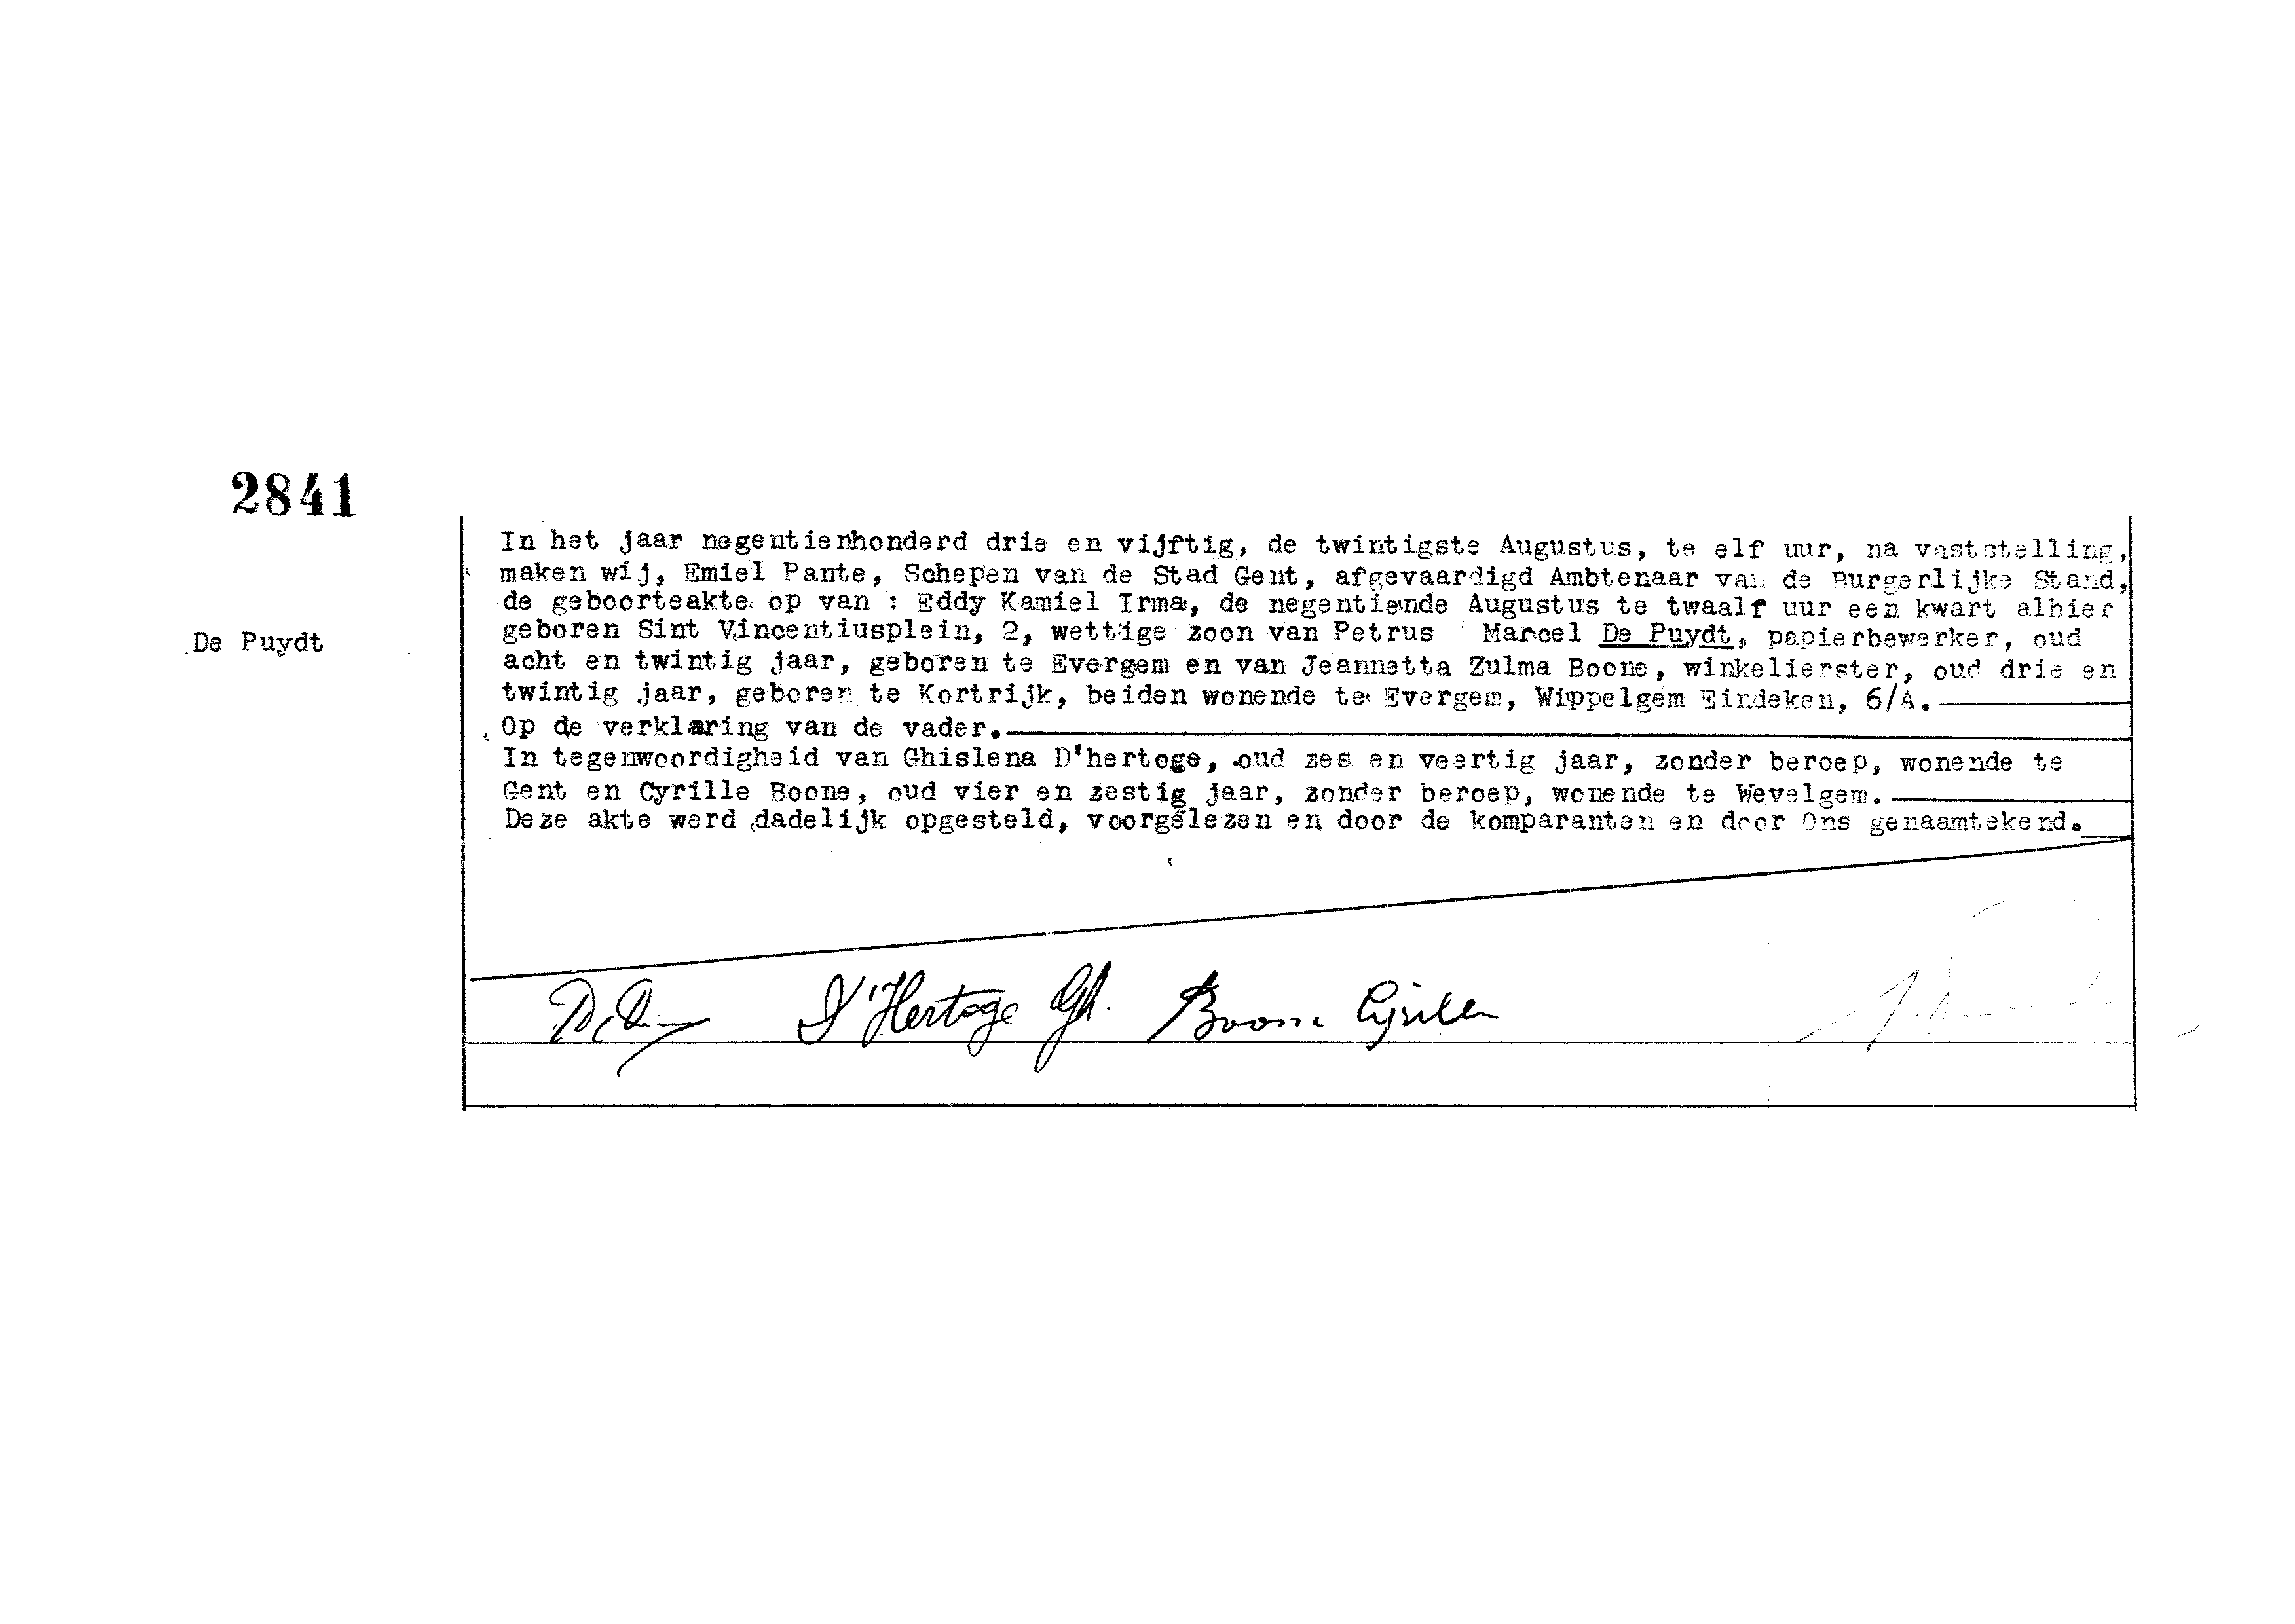 2841
De Puydt
In het jaar negentienhonderd drie en vijftig, de twintigste Augustus, te elf uur, na vaststelling,
maken wij, Emiel Pante, Schepen van de Stad Gent, afgevaardigd Ambtenaar van de Burgerlijke Stand,
de geboorteakte op van : Eddy Kamiel Irma, de negentiende Augustus te twaalf uur een kwart alhier
geboren Sint Vincentiusplein, 2, wettige zoon van Petrus Marcel De Puydt, papierbewerker, oud
acht en twintig jaar, geboren te Evergem en van Jeannetta Zulma Boone, winkelierster, oud drie en
twintig jaar, geboren te Kortrijk, beiden wonende te Evergem, Wippelgem Eindeken, 6/A.
Op de verklaring van de vader.
In tegenwoordigheid van Ghislena D'hertoge, oud zes en veertig jaar, zonder beroep, wonende te
Gent en Cyrille Boone, oud vier en zestig jaar, zonder beroep, wonende te Wevelgem.
Deze akte werd dadelijk opgesteld, voorgelezen en door de komparanten en door Ons genaamtekend.
D'Hertoge Gh. Boone